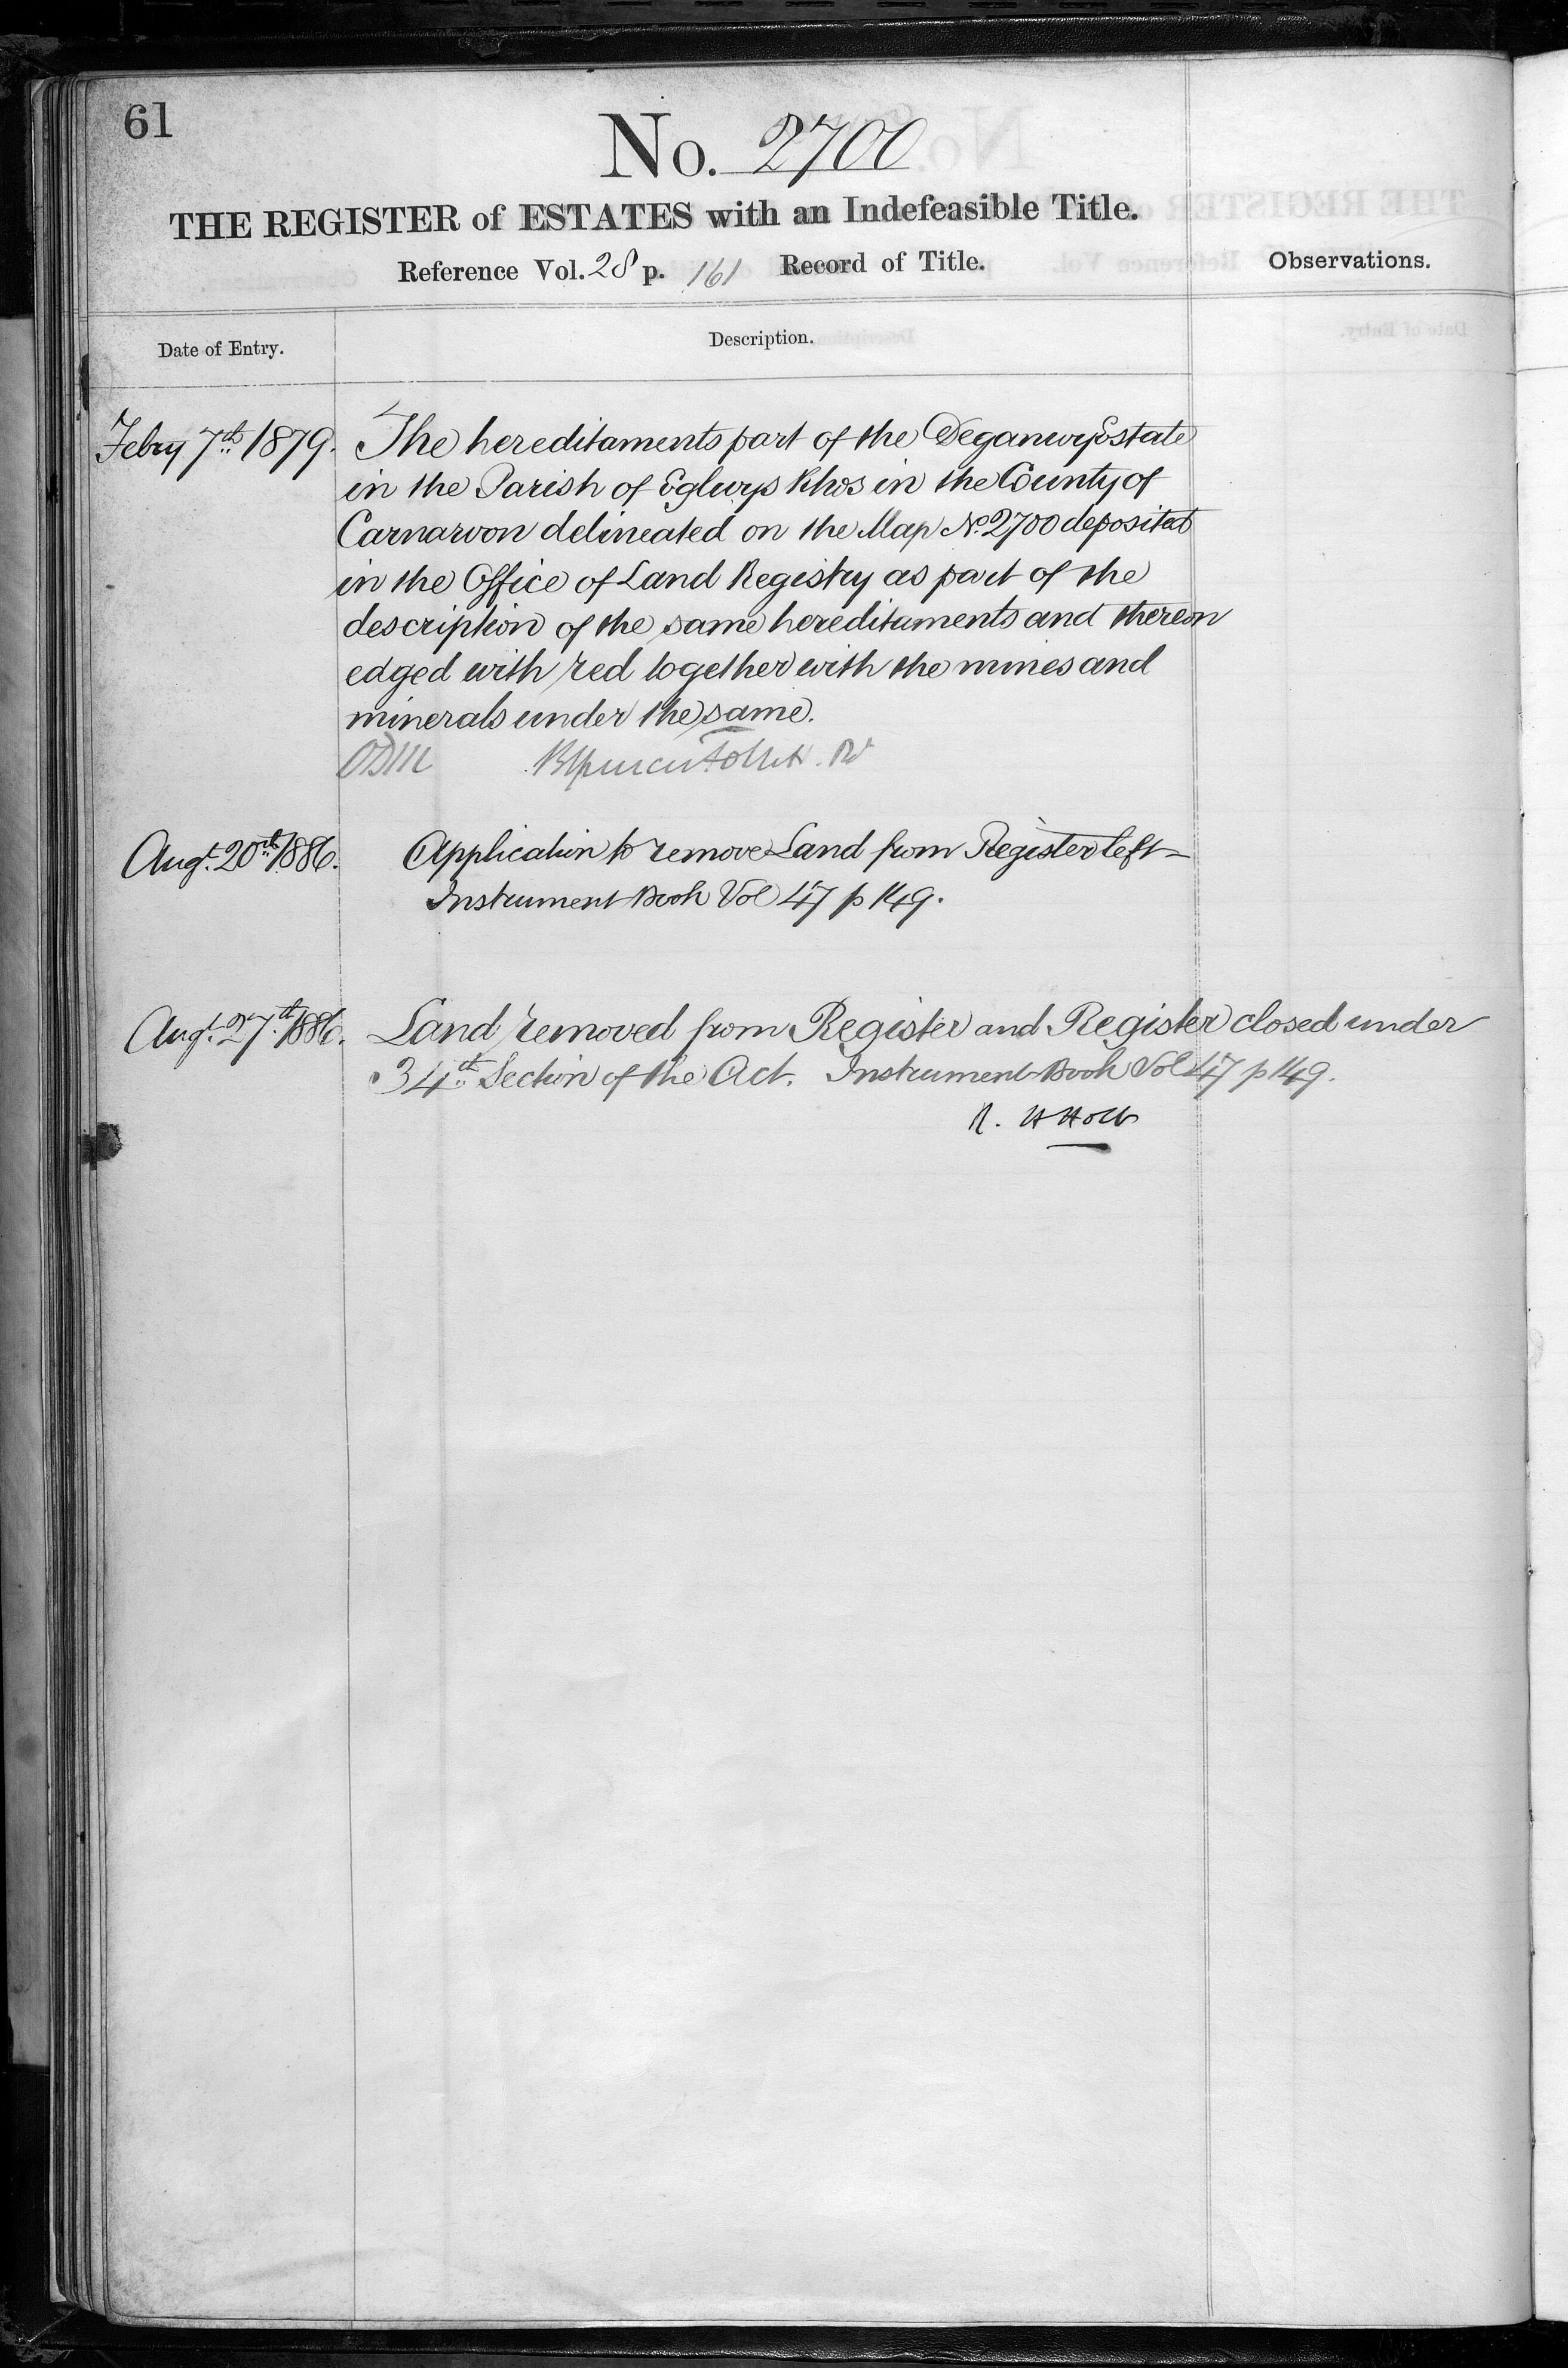 61
No. 2700
THE REGISTER of ESTATES with an Indefeasible Title.
Reference Vol. 28 p. 161 Record of Title.
Observations.
Date of Entry.
Description.
Febry 7th 1879. The hereditaments part of the Deganwy Estate
in the Parish of Eglwys Rhos in the County of
Carnarvon delineated on the Map No. 2700 deposited
in the Office of Land Registry as part of the
description of the same hereditaments and thereon
edged with red together with the mines and
minerals under the same.
Follett
Augt. 20th 1886. Application to remove Land from Register left
Instrument Book Vol 47 p 149.
Augt. 27th 1886. Land removed from Register and Register closed under
34th Section of the Act. Instrument Book Vol 47 p 149.
R. H Holt